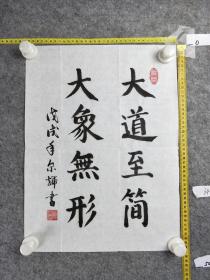 大道至简
大象無形
戊戌年尔辉書